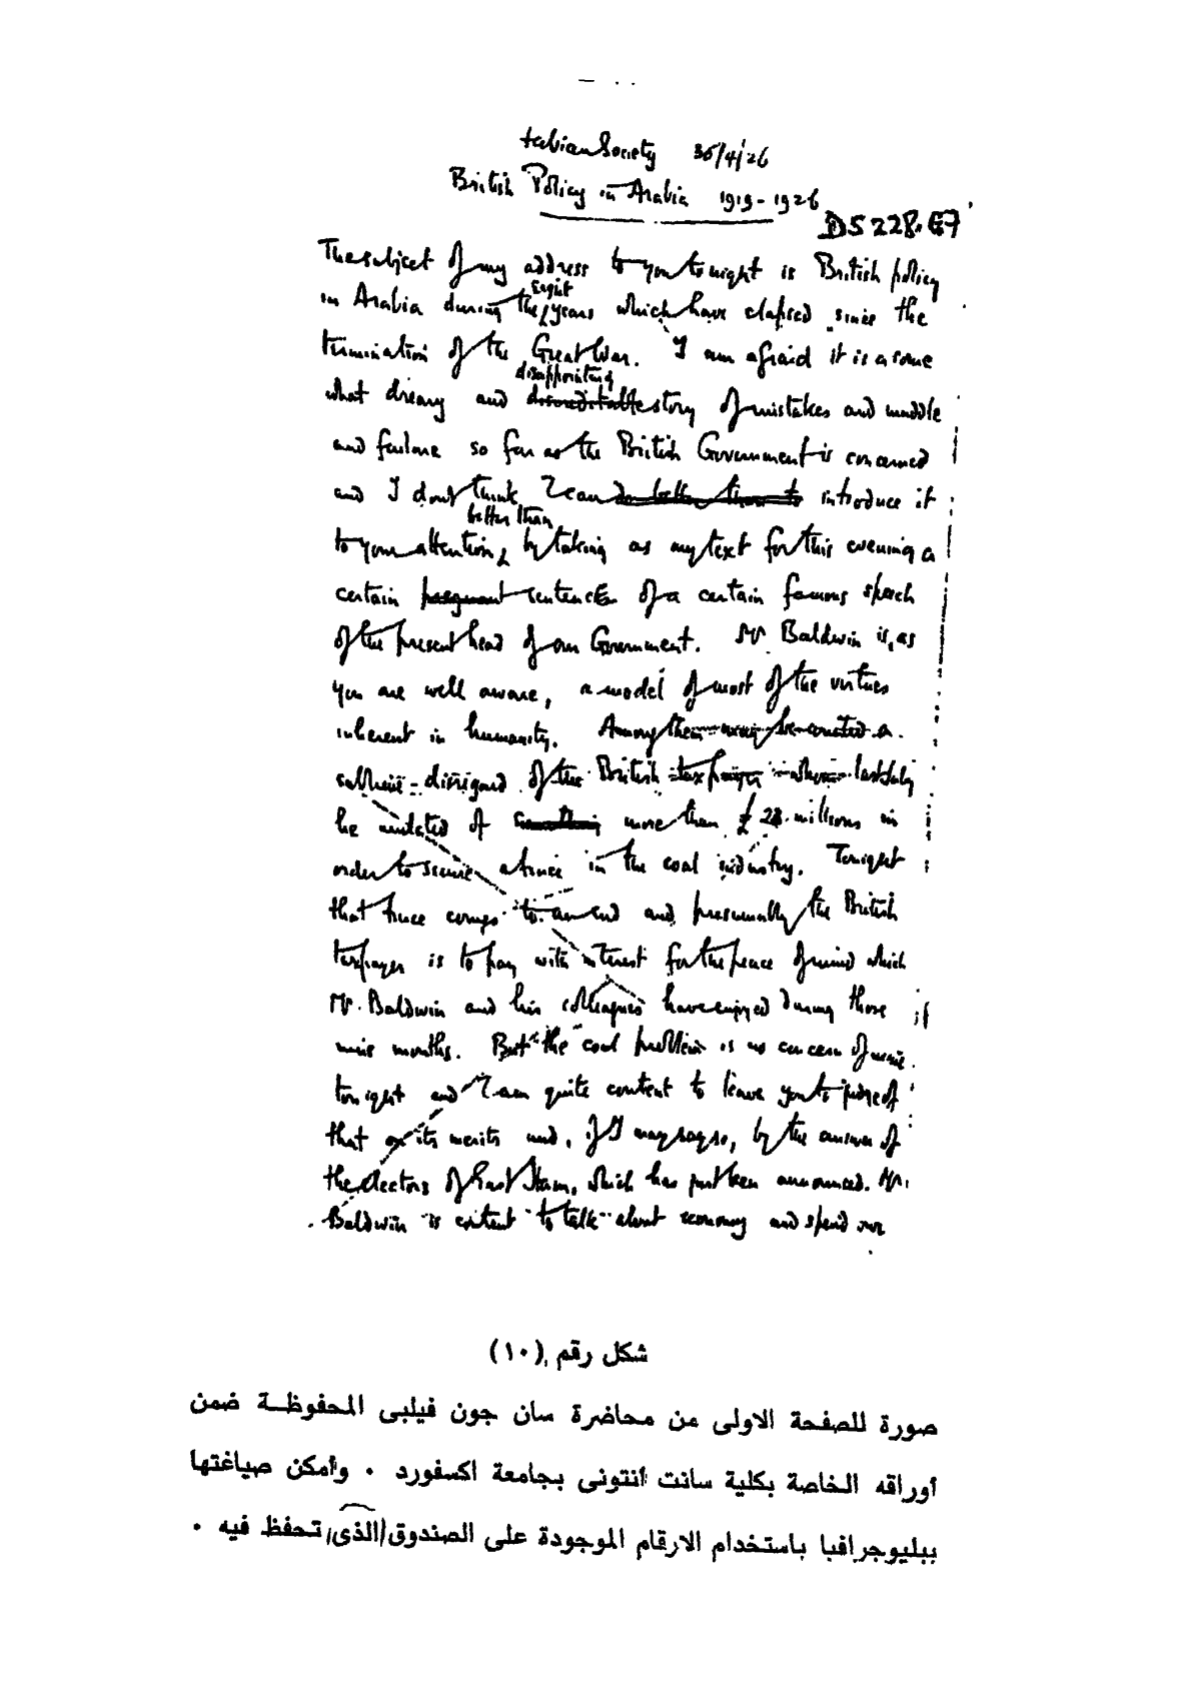 Fabian Society 30/4/26
British Policy in Arabia 1919-1926
DS 228.G7
The subject of my address to you tonight is British policy
eight
in Arabia during the years which have elapsed since the
termination of the Great War. I am afraid it is a some
disappointing
what dreary and discreditable story of mistakes and muddle
and failure so far as the British Government is concerned
and I don't think I can do better than to introduce it
better than
to your attention, by taking as my text for this evening a
certain pregnant sentence of a certain famous speech
of the present head of our Government. Mr Baldwin is, as
you are well aware, a model of most of the virtues
inherent in humanity. Among them may be counted a
sublime disregard of the British taxpayer whom last July
he mulcted of more than £ 23 millions in
order to secure a truce in the coal industry. Tonight
that truce comes to an end and presumably the British
taxpayer is to pay with interest for the peace of mind which
Mr. Baldwin and his colleagues have enjoyed during those
nine months. But the coal problem is no concern of mine
tonight and I am quite content to leave you to judge of
that on its merits and, if I may say so, by the answer of
the electors of East Ham, which has just been announced. Mr.
Baldwin is content to talk about economy and spend our
شكل رقم (١٠)
صورة للصفحة الاولى من محاضرة سان جون فيلبى المحفوظة ضمن
أوراقه الخاصة بكلية سانت أنتونى بجامعة اكسفورد . وأمكن صياغتها
ببليوجرافيا باستخدام الارقام الموجودة على الصندوق الذى تحفظ فيه .